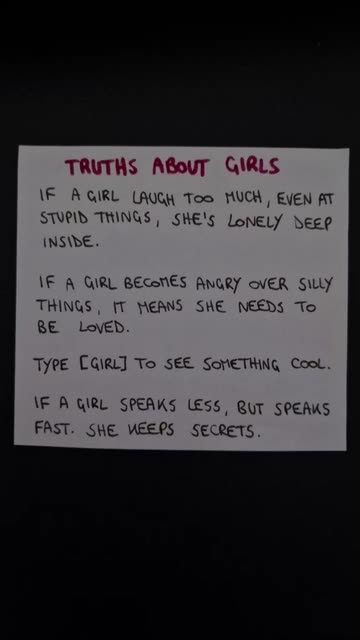 TRUTHS ABOUT GIRLS
IF A GIRL LAUGH TOO MUCH, EVEN AT
STUPID THINGS, SHE'S LONELY DEEP
INSIDE.
IF A GIRL BECOMES ANGRY OVER SILLY
THINGS, IT MEANS SHE NEEDS TO
BE LOVED.
TYPE [GIRL] TO SEE SOMETHING COOL.
IF A GIRL SPEAKS LESS, BUT SPEAKS
FAST. SHE KEEPS SECRETS.